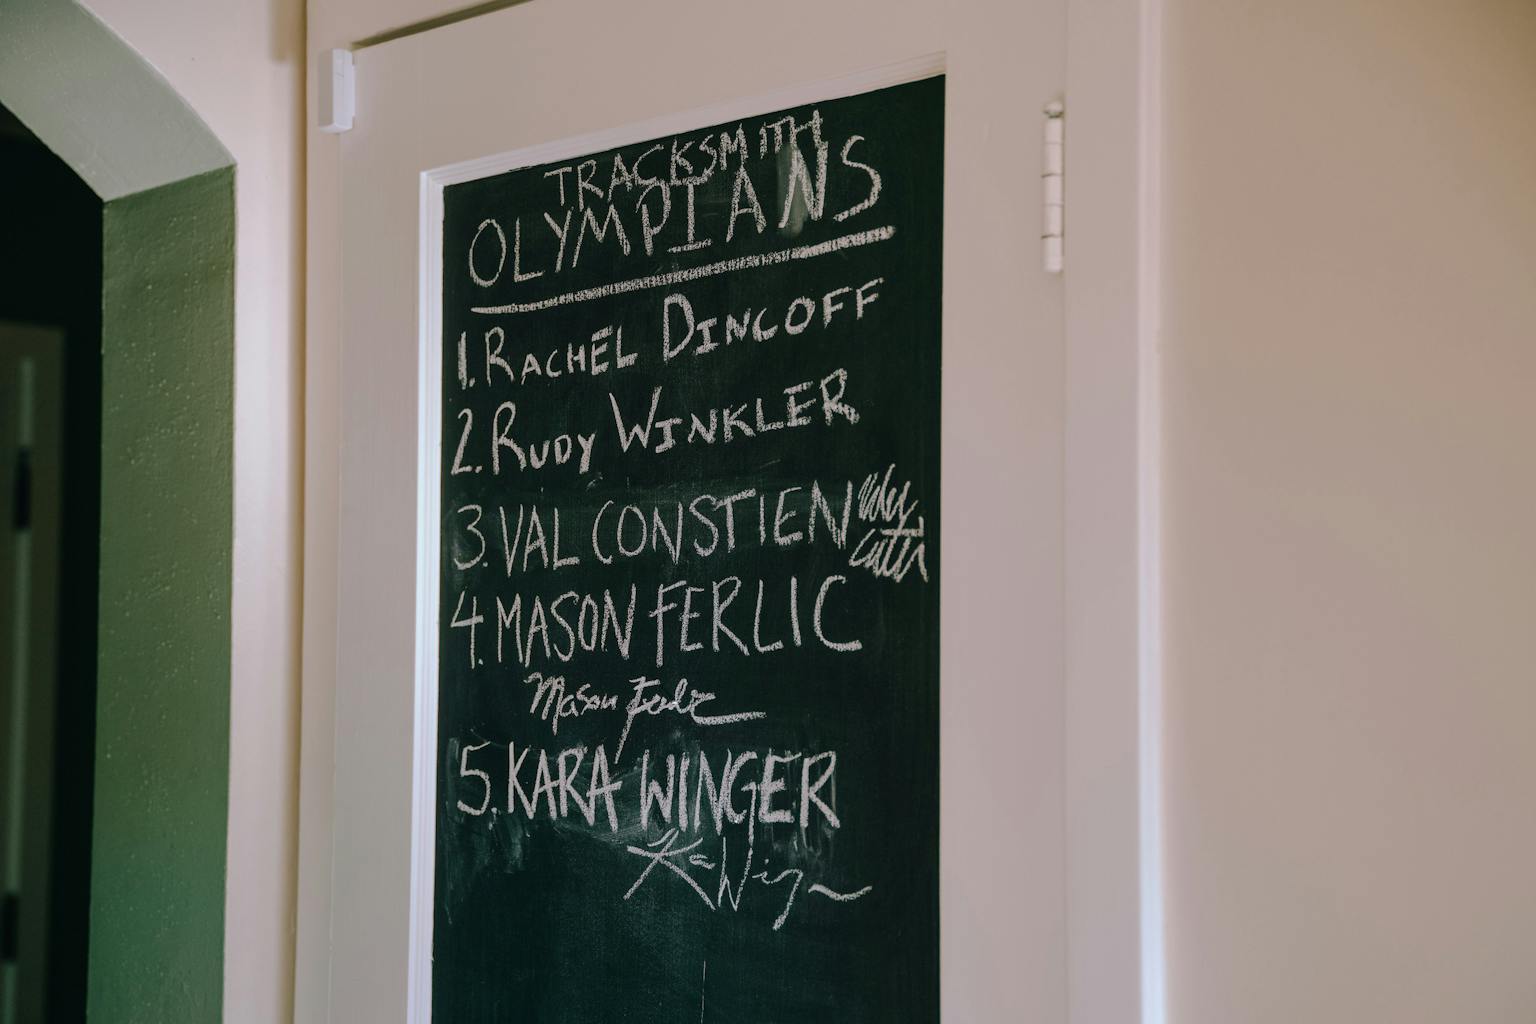 TRACKSMITH
OLYMPIANS
1. RACHEL DINCOFF
2. RUDY WINKLER
3. VAL CONSTIEN
4. MASON FERLIC
Mason Ferlic
5. KARA WINGER